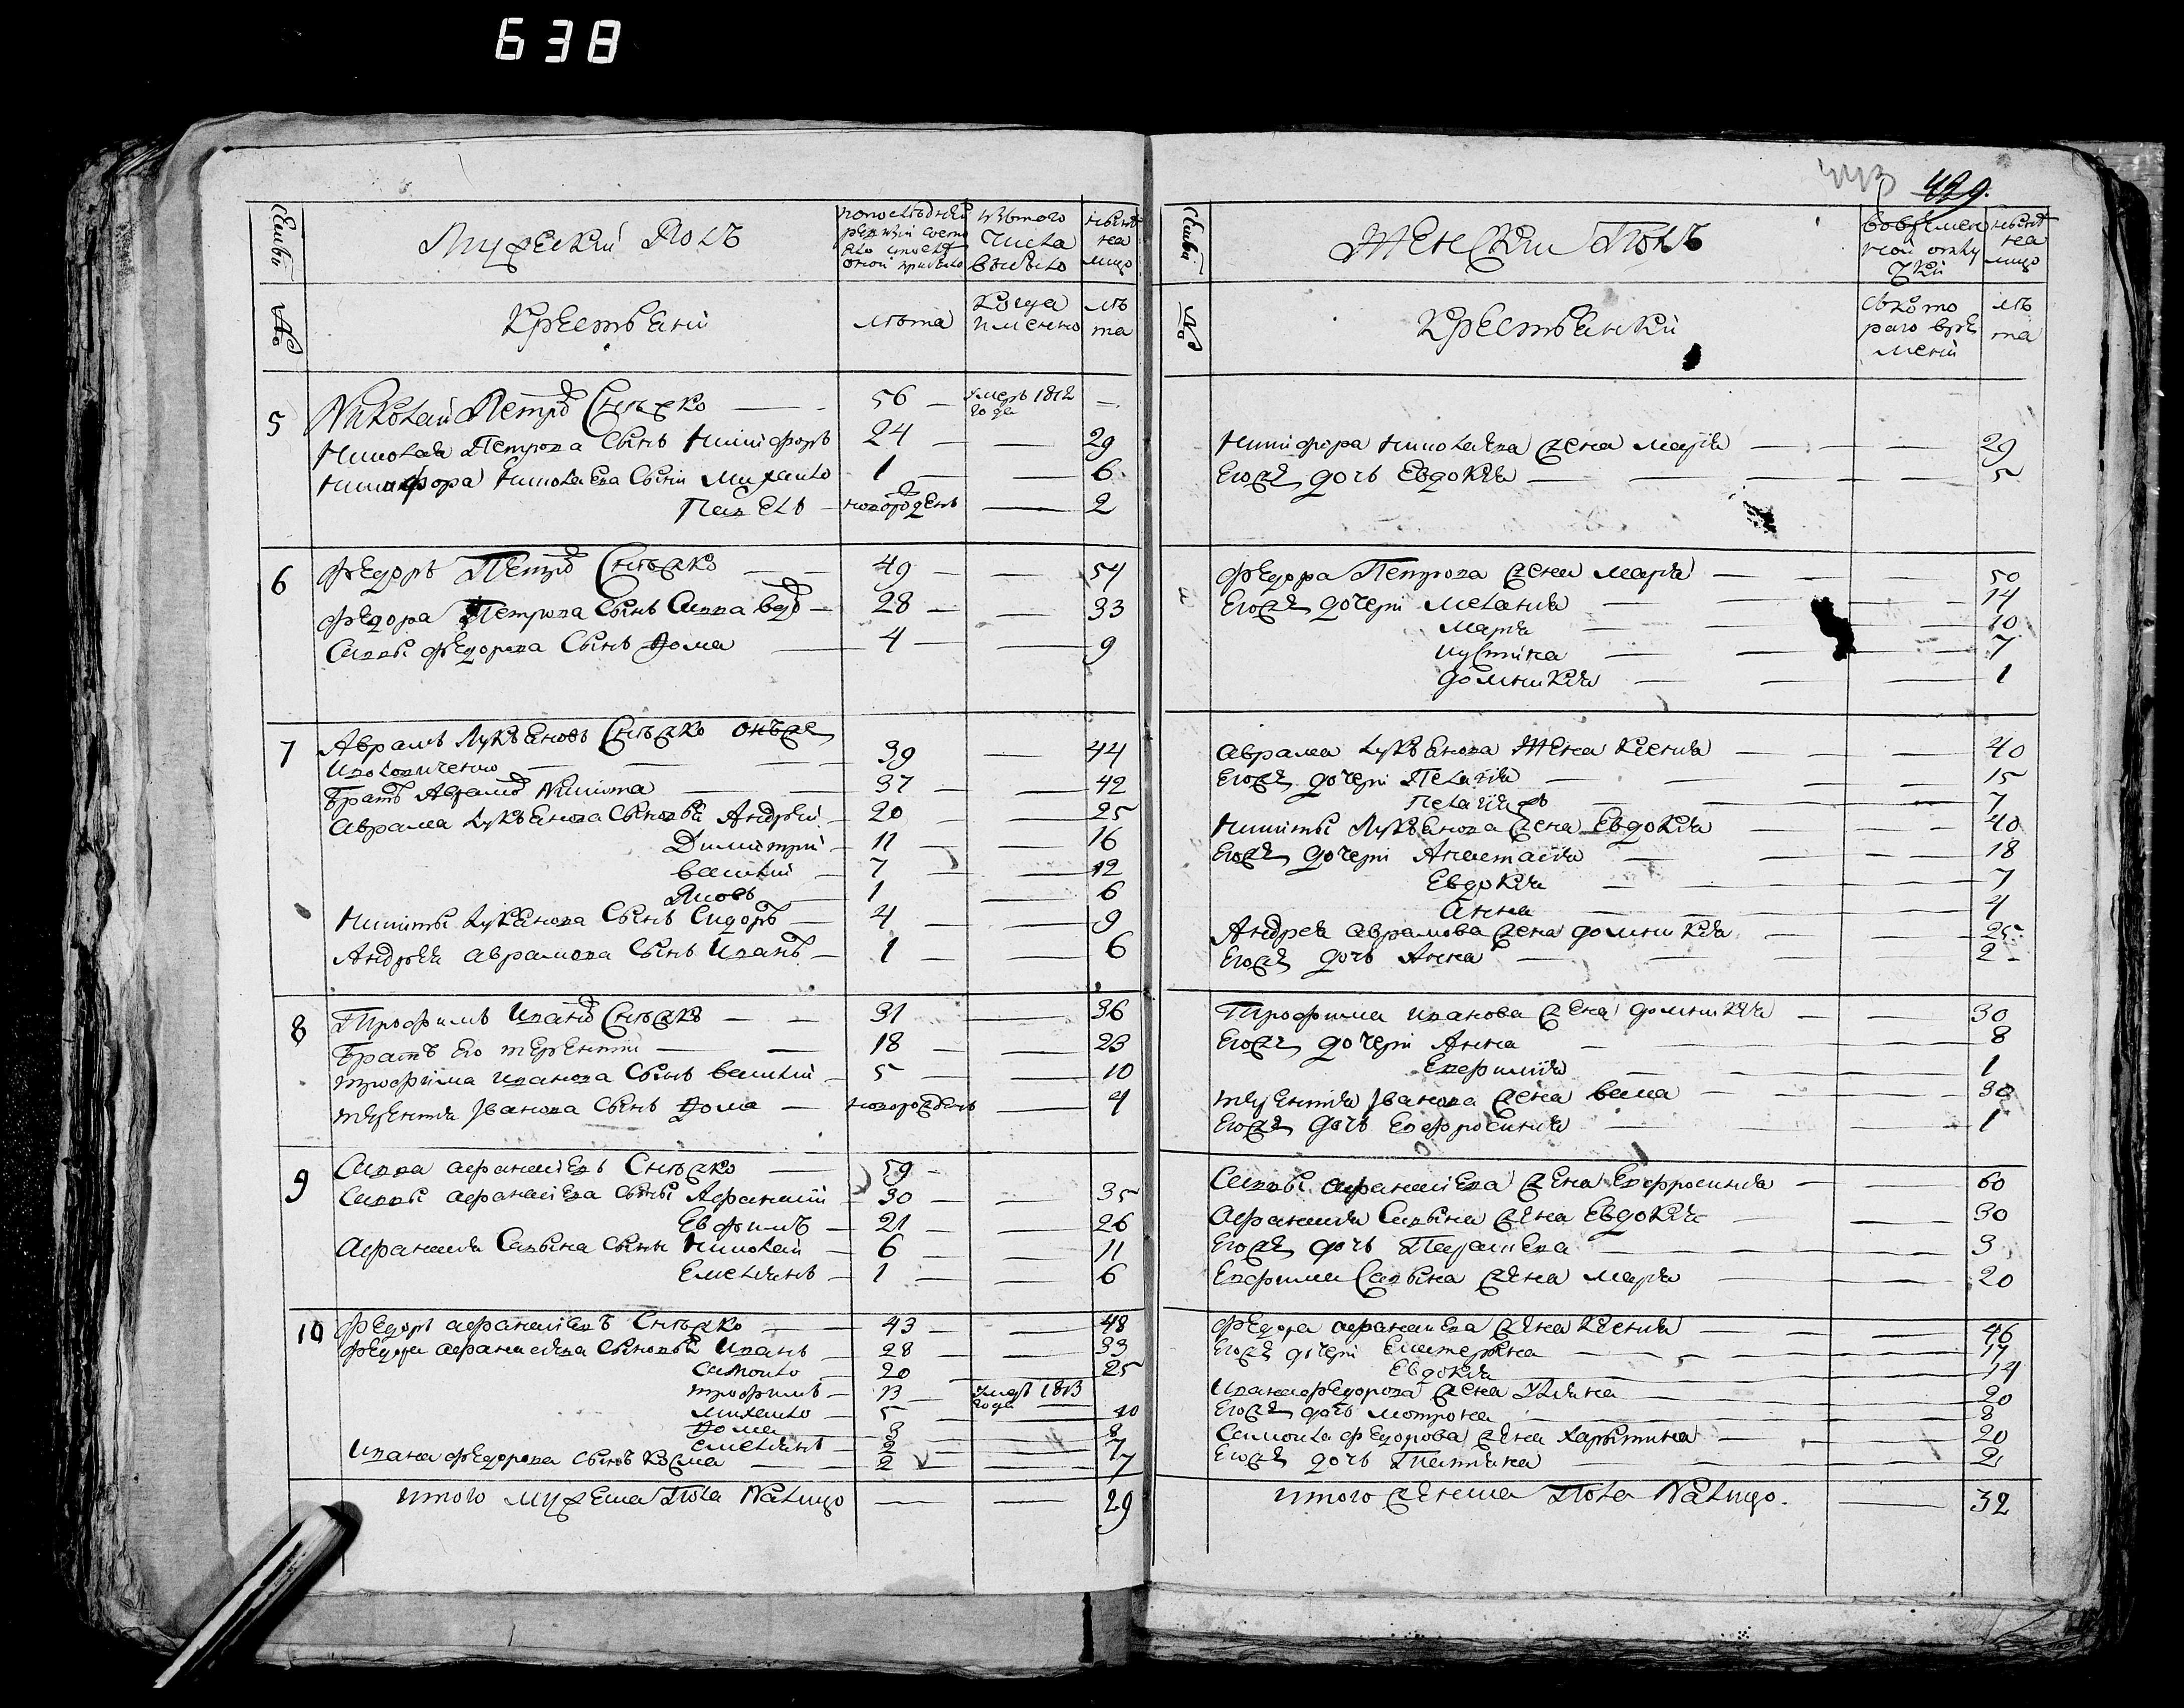 638
429.
Семьи
Мужеский Полъ
по последней ревизии состояло и после оной прибыло
изътого Числа выбыло
ныне на лицо
№
Крестьяни
лета
Когда именно
лета
5
Николай Петровъ Снежко — 56 — умеръ 1812 года —
Николая Петрова Сынъ Никифоръ 24 — — 29
Никифора Николаева Сыни Михаило 1 — — 6
Павелъ — новорожденъ — 2
6
Федоръ Петровъ Снежко — 49 — — 54
Федора Петрова Сынъ Савва — 28 — — 33
Саввы Федорова Сынъ Фома — 4 — — 9
7
Аврамъ Лукъяновъ Снежко онъже
39 — 44
Братъ Аврамовъ Никита — 37 — — 42
Аврама Лукъянова Сыновья Андрей — 20 — — 25
Димитрий — 11 — — 16
Василий — 7 — — 12
Яковъ — 1 — — 6
Никиты Лукянова Сынъ Сидоръ — 4 — — 9
Андрея Аврамова Сынъ Иванъ — 1 — — 6
8
Трофимъ Ивановъ Снежко — 31 — — 36
Братъ его терентий — 18 — — 23
трофима иванова Сынъ василий — 5 — — 10
терентия Иванова Сынъ Фома — новорожденъ — 4
9
Савва афанасиевъ Снежко — 59 —
Саввы афанасиева Сыны Афанасий — 30 — — 35
Евфимъ — 21 — — 26
Афанасия Савына Сыны Николай — 6 — — 11
Емелианъ — 1 — — 6
10
Федоръ афанасиевъ Снежко — 43 — — 48
Федора афанасиева Сыновья Иванъ — 28 — — 33
Самоило — 20 — — 25
трофимъ — 13 — умеръ 1813 года —
Михаило — 5 — — 10
Фома — 3 — — 8
емелианъ — 2 — — 7
Ивана федорова Сынъ Козма — 2 — — 7
итого мужеска Пола Налицо — — 29
Семьи
Женский Полъ
вовременной отлучки
ныне на лицо
№
Крестьянки
съкотораго времени
лета
Никифора Николаева жена Мария — — 29
Егоже дочь Евдокия — — 5
Федора Петрова жена Мария — — 50
Егоже дочери Мелания — — 14
Мария — — 10
иустина — — 7
домникия — — 1
Аврама Лукъянова Жена Ксения — — 40
Егоже дочери Пелагия — — 15
Пелагияжъ — — 7
Никиты Лукъянова жена Евдокия — — 40
Егоже дочери Анастасия — — 18
Евдокия — — 7
Анна — — 4
Андрея Аврамова жена домникия — — 25
Егоже дочь Анна — — 2
Трофима иванова жена домникия — — 30
Егоже дочери Анна — — 8
Евфимия — — 1
терентия Иванова жена васса — — 30
Егоже дочь Евфросиния — — 1
Саввы афанасиева жена Евфросиния — — 60
Афанасия Савына жена Евдокия — — 30
Егоже дочь Параскева — — 3
Евфима Савына жена Мария — — 20
Федора афанасиева жена Ксения — — 46
Егоже дочери Екатерина — — 17
Евдокия — — 14
Ивана федорова жена — — 20
Егоже дочь мотрона — — 8
Самоила федорова жена харитина — — 20
Егоже дочь Татияна — — 2
итого женска Пола Налицо. — 32